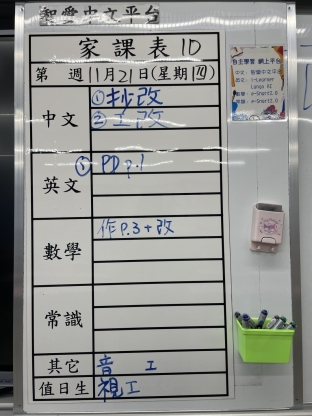 智愛中文平台
家課表 1D
第 週 11月21日(星期四)
中文
①抄改
②工改
英文
① PD p.1
數學
作P.3+改
常識
其它
音 工
值日生
視工
自主學習 網上平台
中文: 智愛中文平台
i-Learner
e-Smart2.0
e-Smart2.0